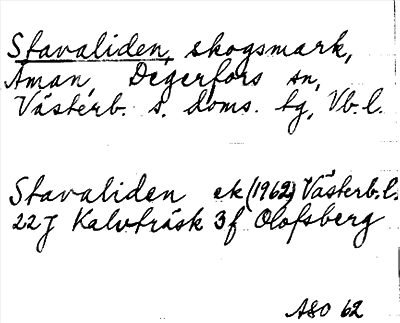 Stavaliden, skogsmark,
Åman, Degerfors sn,
Västerb. s. doms. tg, Vb. l.
Stavaliden ek (1962) Västerb. l.
22 J Kalvträsk 3 f Olofsberg
ASO 62